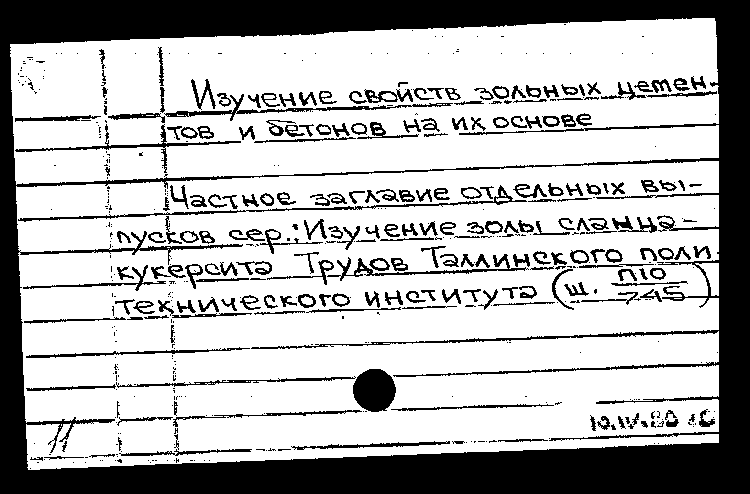 Изучение свойств зольных цемен-
тов и бетонов на их основе
Частное заглавие отдельных вы-
пусков сер.: Изучение золы сланца-
кукерсита Трудов Таллинского поли
технического института (ш. П10/745)
11
10.IV.80